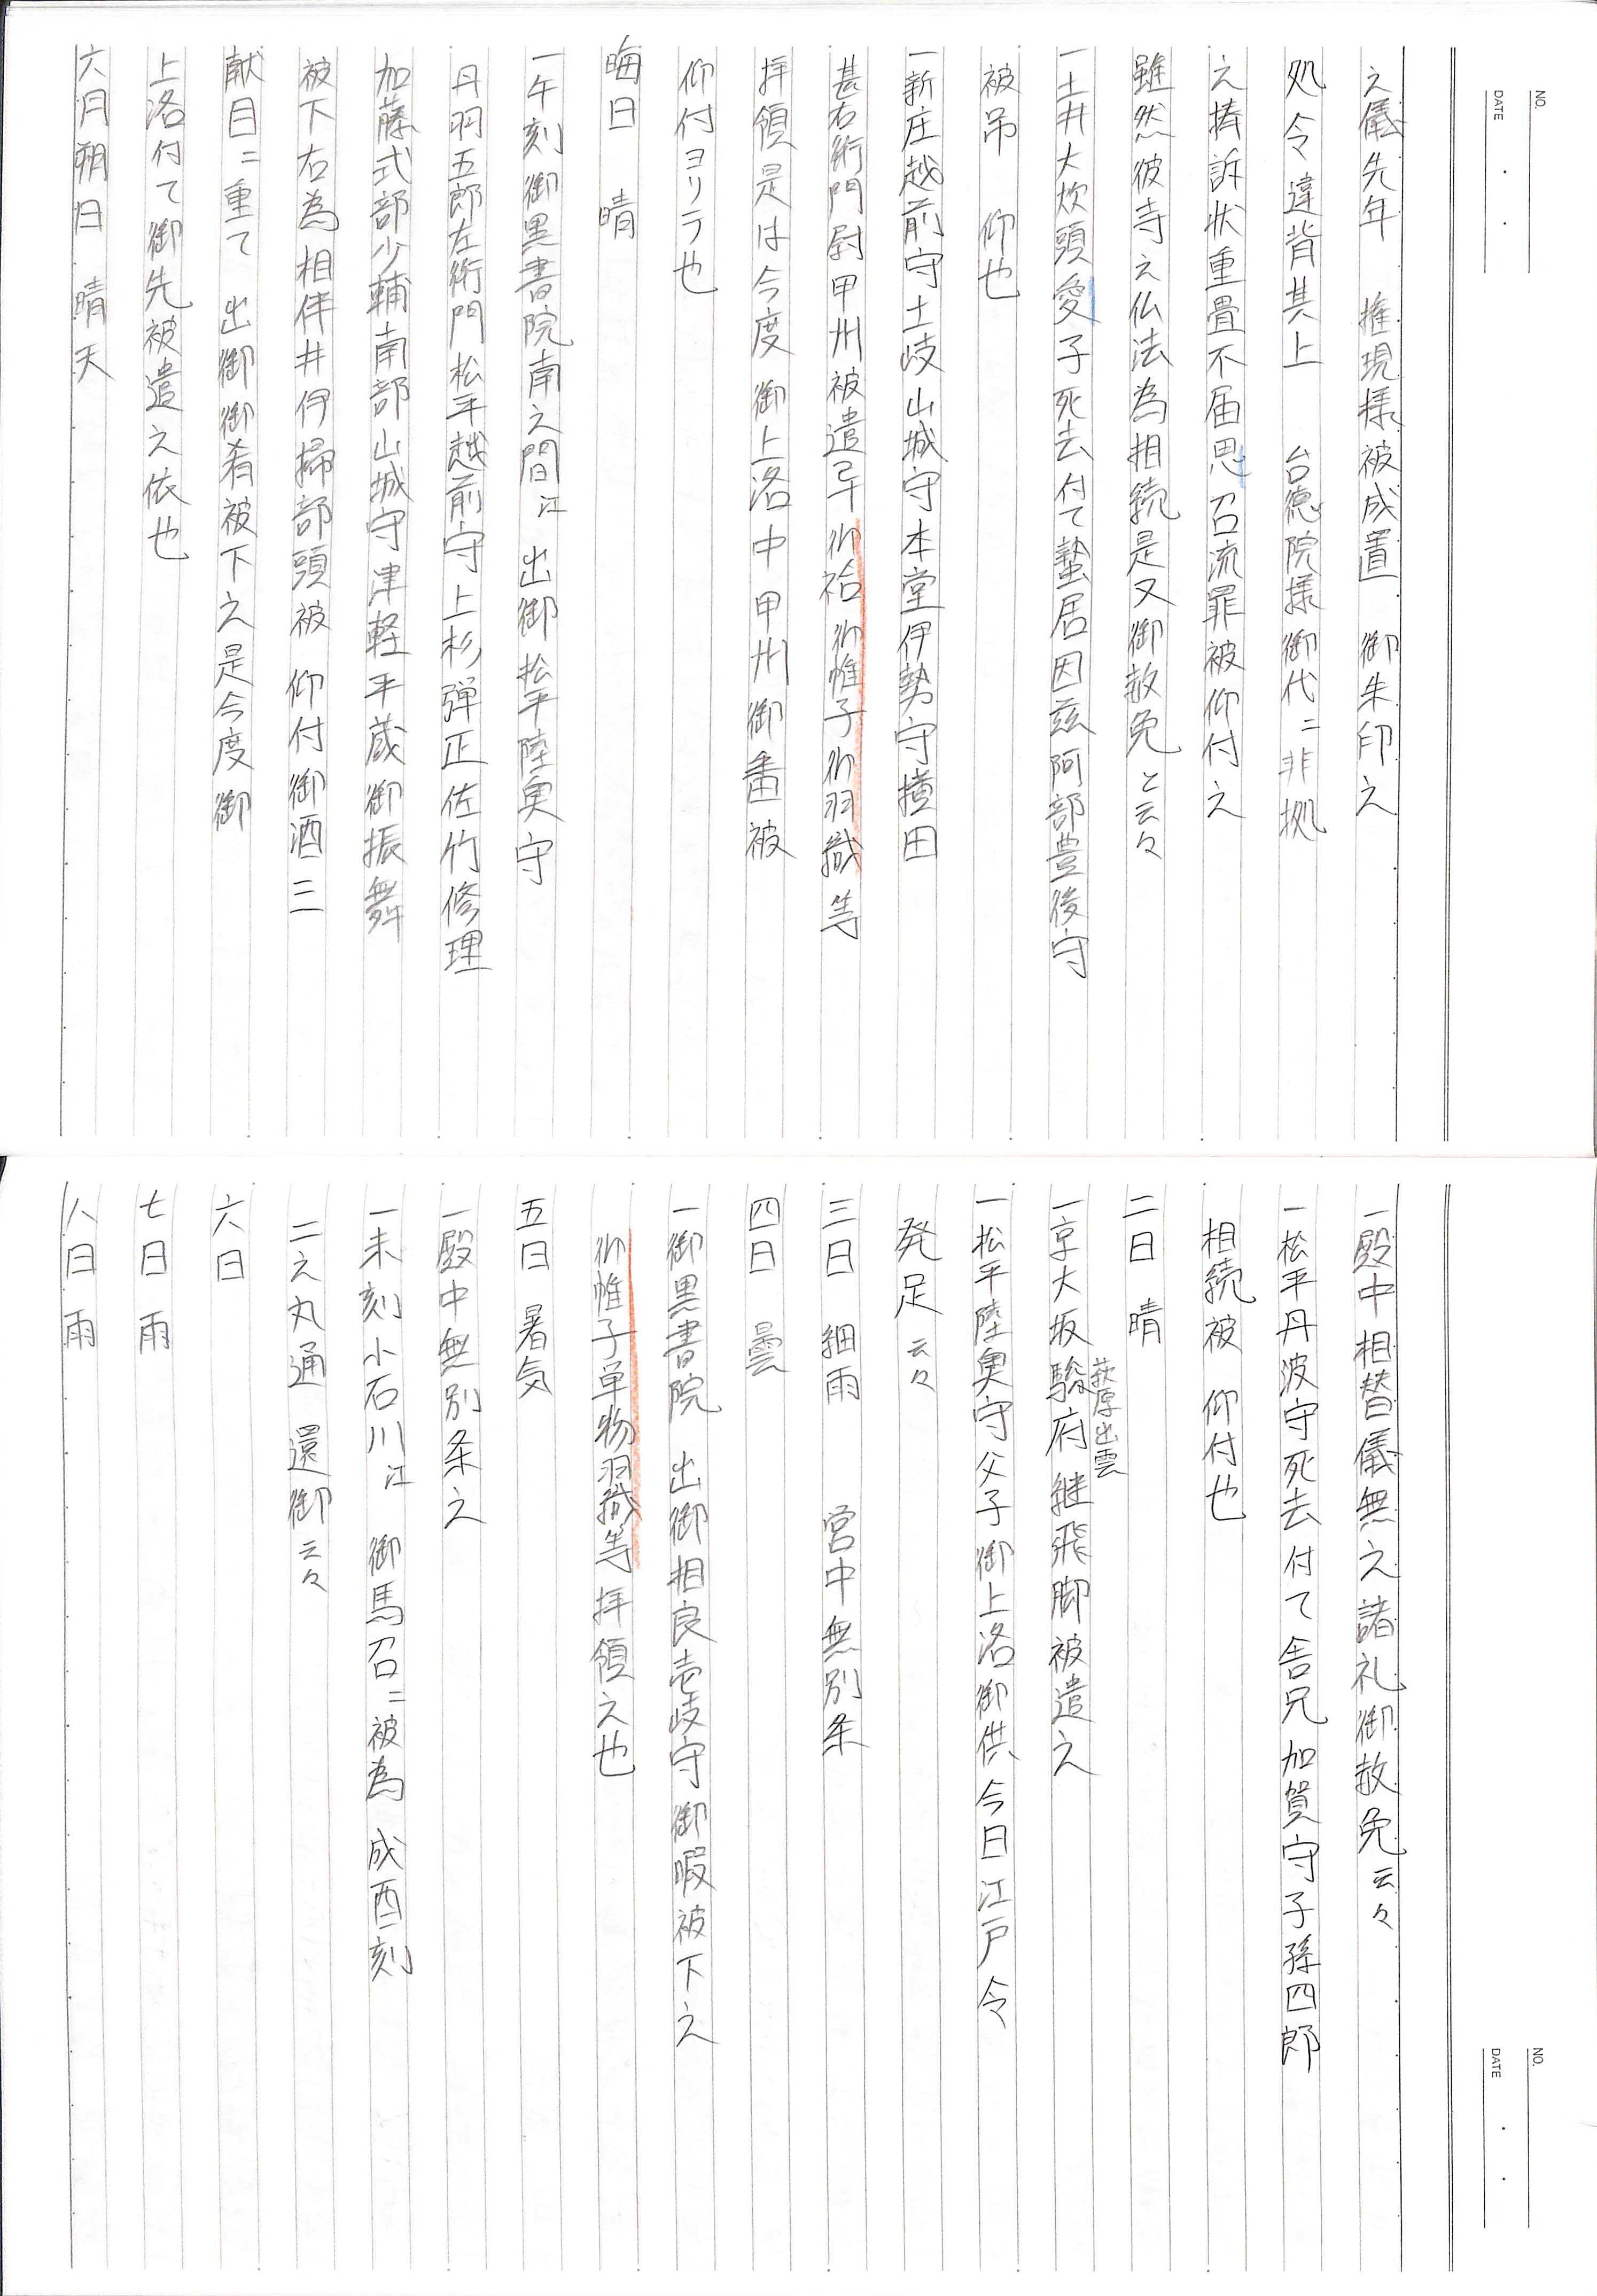 NO.
DATE
之儀先年　権現様被成置　御朱印之
処令違背其上　台徳院様御代ニ非拠
之捧訴状重畳不届思召流罪被仰付之
雖然彼寺之仏法為相続是又御赦免と云々
一土井大炊頭愛子死去付て蟄居因茲阿部豊後守
被吊　仰也
一新庄越前守土岐山城守本堂伊勢守横田
甚右衛門尉甲州被遣ニ午御袷御帷子御羽織等
拝領是は今度御上洛中甲州御番被
仰付ヨリテ也
晦日　晴
一午刻御黒書院南之間江　出御松平陸奥守
丹羽五郎左衛門松平越前守上杉弾正佐竹修理
加藤式部少輔南部山城守津軽平蔵御振舞
被下右為相伴井伊掃部頭被　仰付御酒三
献目ニ重て　出御御肴被下之是今度御
上洛付て御先被遣之依也
六月朔日　晴天
NO.
DATE
一殿中相替儀無之諸礼御赦免云々
一松平丹波守死去付て舎兄加賀守子孫四郎
相続被　仰付也
二日　晴
萩原出雲
一京大坂駿府継飛脚被遣之
一松平陸奥守父子御上洛御供今日江戸令
発足云々
三日　細雨　宮中無別条
四日　曇
一御黒書院　出御相良壱岐守御暇被下之
御帷子単物羽織等拝領之也
五日　暑気
一殿中無別条之
一未刻小石川江　御馬召ニ被為　成酉刻
二之丸通　還御云々
六日
七日　雨
八日　雨